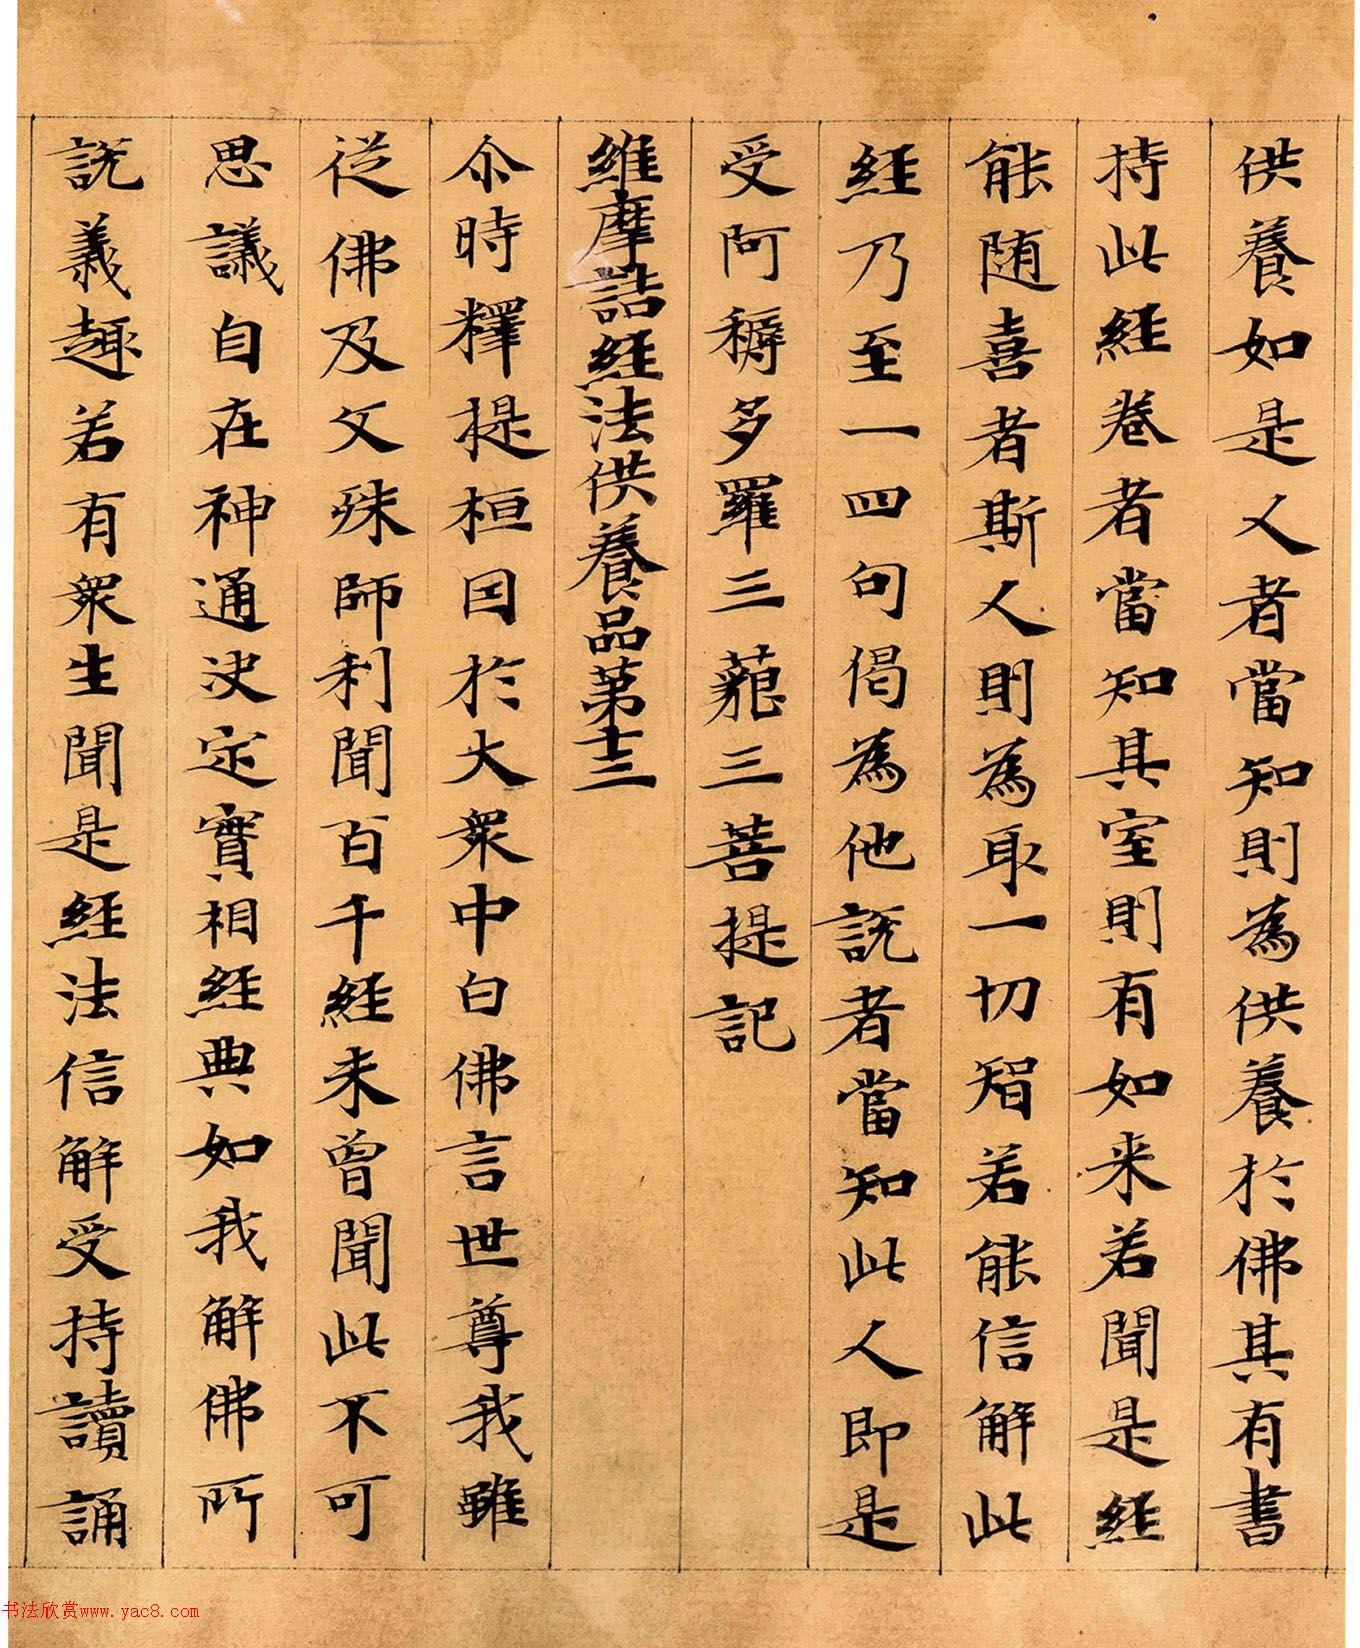 供養如是人者當知則為供養於佛其有書
持此經卷者當知其室則有如来若聞是經
能随喜者斯人則為取一切智若能信解此
經乃至一四句偈為他説者當知此人即是
受阿耨多羅三藐三菩提記
維摩詰經法供養品第十三
尒時釋提桓因於大衆中白佛言世尊我雖
從佛及文殊師利聞百千經未曾聞此不可
思議自在神通决定實相經典如我解佛所
説義趣若有衆生聞是經法信解受持讀誦
书法欣赏www.yac8.com